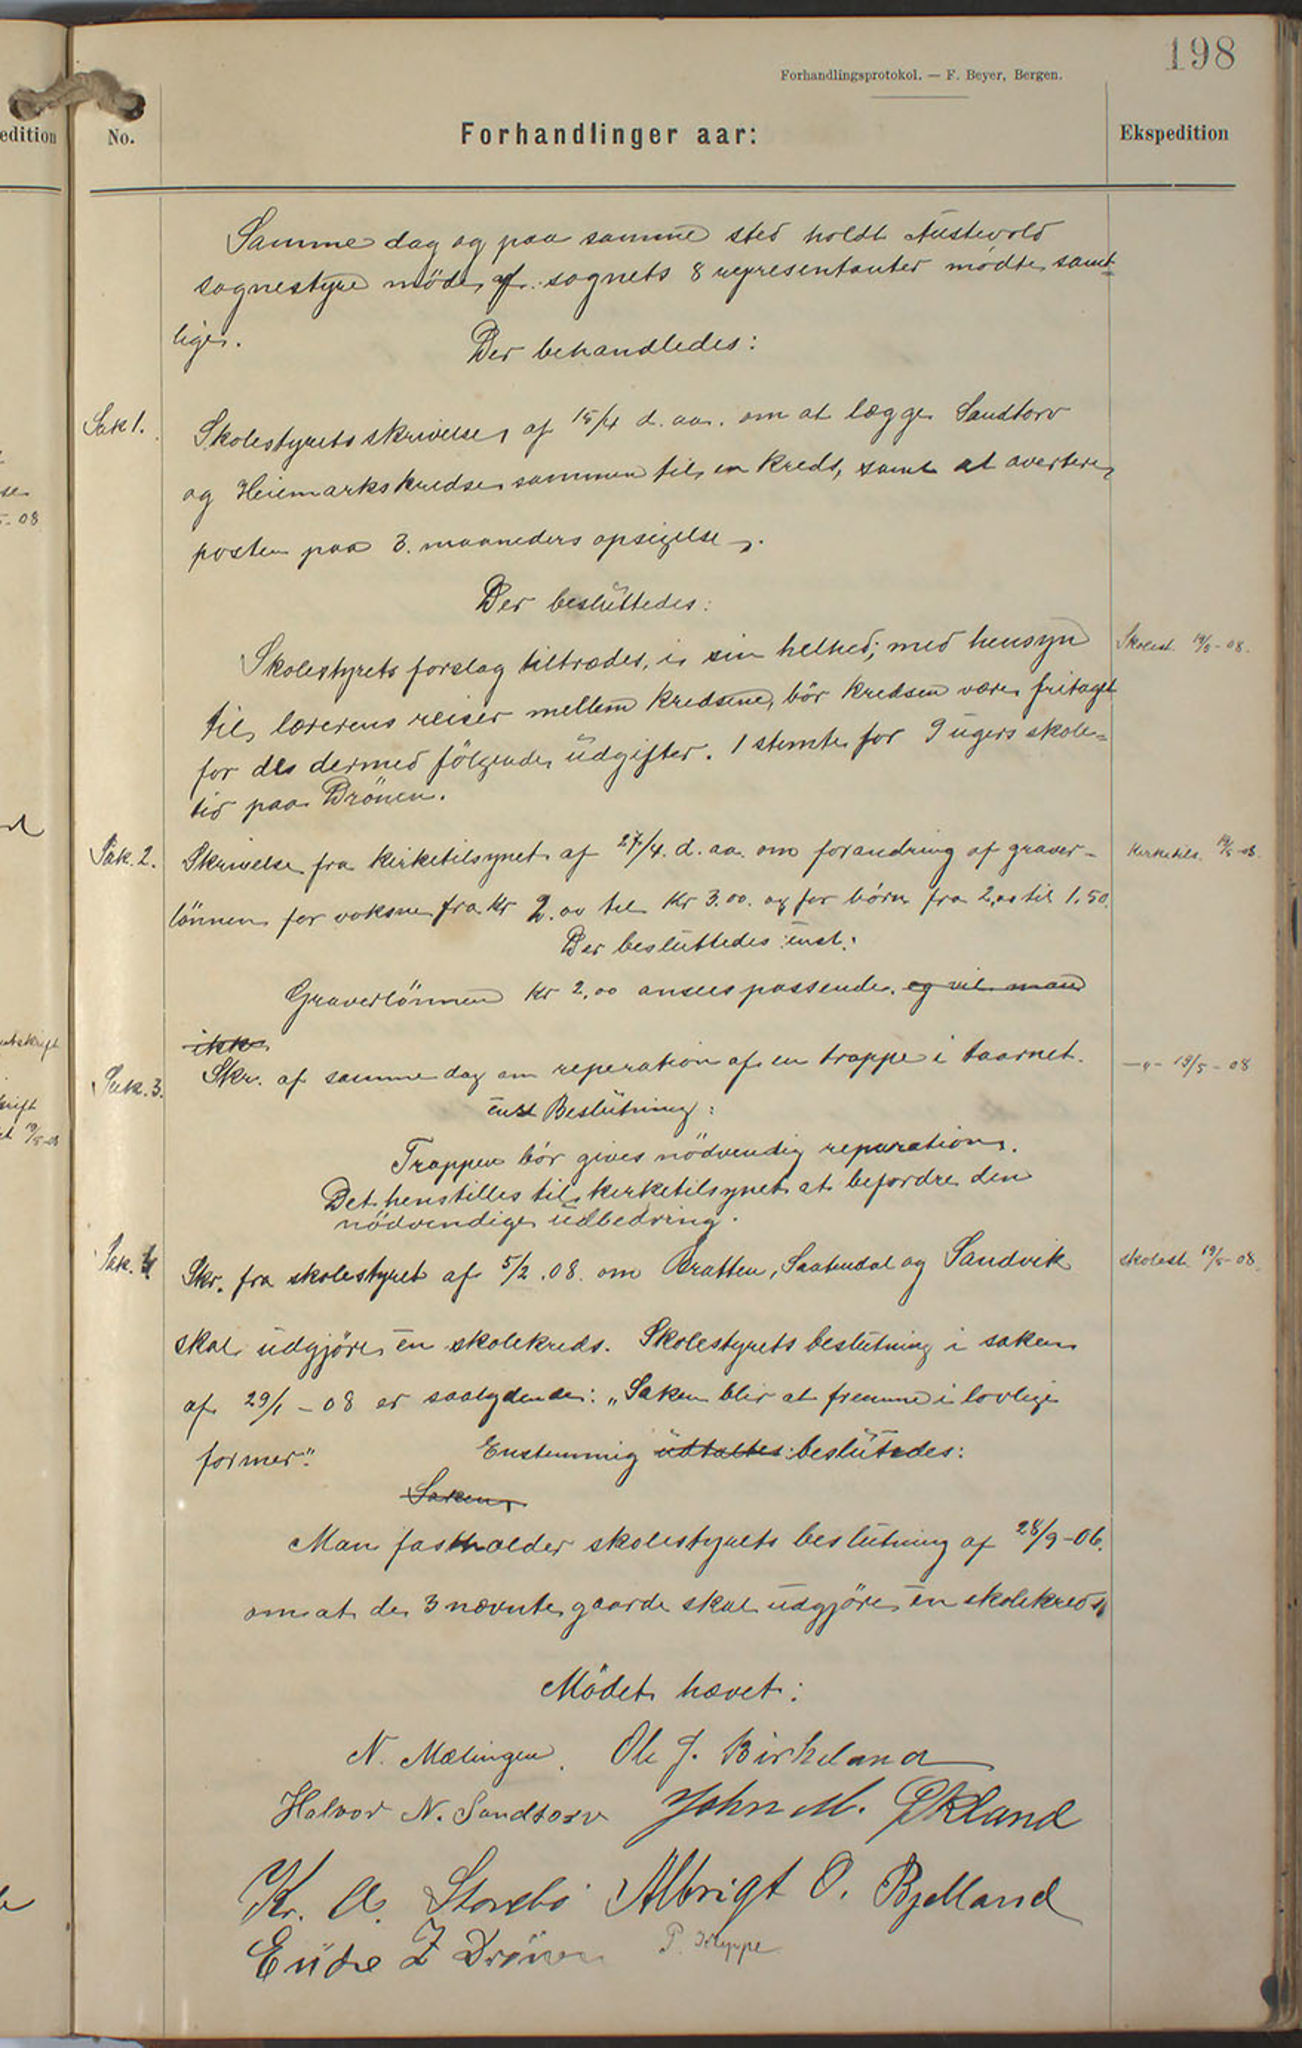 198
Forhandlingsprotokol. — F. Beyer, Bergen.
edition
No.
Forhandlinger aar:
Ekspedition
Samme dag og paa samme sted holdt Austevold
sognestyre möde, af sognets 8 representanter mödte samt-
lige.
Der behandledes:
Sak 1.
Skolestyrets skrivelse af 15/4 d. aa. om at lægge Sandtorv
og Heiemarkskredse sammen til en kreds, samt at avertere
posten paa 3. maaneders opsigelse.
Der besluttedes:
Skolestyrets forslag tiltrædes, i sin helhed; med hensyn
Skolest. 19/5-08.
til lærerens reiser mellem kredsene, bör kredsen være fritaget
for de dermed fölgende udgifter. 1 stemte for 9 ugers skole-
tid paa Drönen.
Sak. 2.
Skrivelse fra kirketilsynet af 27/4. d. aa. om forandring af graver-
Kirketils. 19/5-08.
lönnen for voksne fra kr 2.00 til kr 3.00. og for börn fra 2,00 til 1,50.
Der besluttedes enst:
Graverlönnen kr 2,00 ansees passende. og vil man
ikke
Sak. 3.
Skr. af samme dag om reperation af en trappe i taarnet.
-„- 19/5-08
enst Beslutning:
Trappen bör gives nödvendig reparation.
Det henstilles til kirketilsynet at befordre den
nödvendige udbedring.
Sak. 4
Skr. fra skolestyret af 5/2.08. om Bratten, Saatendal og Sandvik
skolest. 19/5-08.
skal udgjöre en skolekreds. Skolestyrets beslutning i saken
af 29/1-08 er saalydende: „Saken blir at fremme i lovlige
former".
Enstemmig udtaltes: beslutedes:
Saken
Man fastholder skolestyrets beslutning af 28/9-06.
om at de 3 nævnte gaarde skal udgjöre en skolekreds
Mödet hævet:
N. Mælingen. Ole J. Birkeland
Halvor N. Sandtorv John M. Økland
Kr. A. Storebö Albrigt O. Bjelland
Endre Z Drönen P. Kleppe